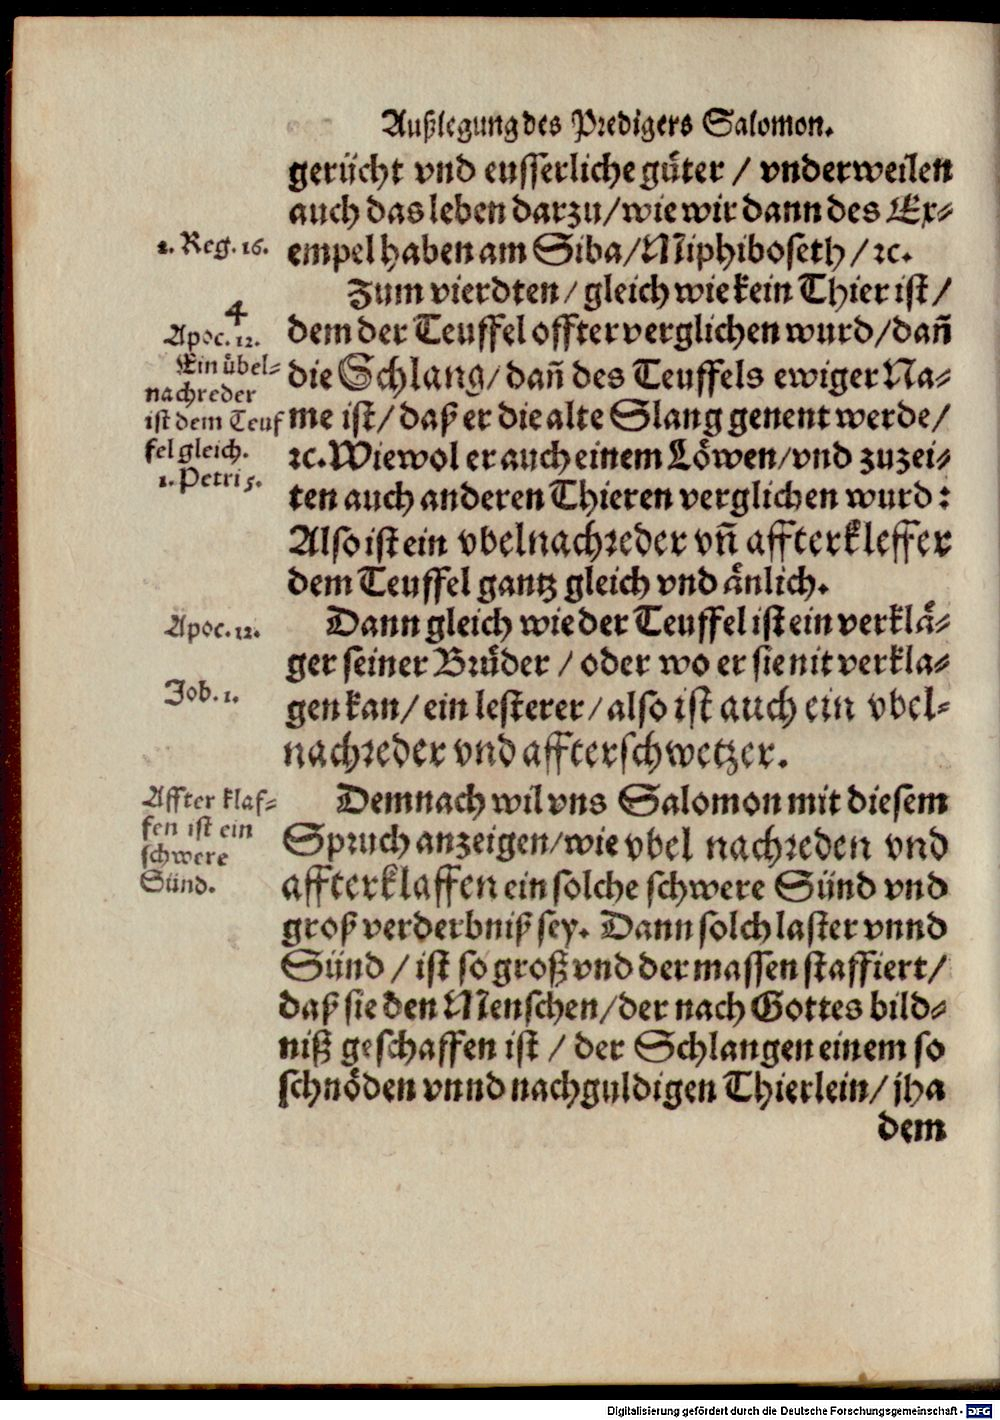 Außlegung des Predigers Salomon.
gerücht vnd eusserliche gůter / vnderweilen
auch das leben darzu/wie wir dann des Ex⸗
2. Reg. 16.
empel haben am Siba/Miphiboseth / ꝛc.
Zum vierdten/ gleich wie kein Thier ist/
4
Apoc. 12.
dem der Teuffel offter verglichen wurd/dañ
Ein übel⸗
nachreder
ist dem Teuf
fel gleich.
1. Petri 5.
die Schlang/ dañ des Teuffels ewiger Na⸗
me ist/ daß er die alte Slang genent werde/
ꝛc. Wiewol er auch einem Löwen/vnd zuzei⸗
ten auch anderen Thieren verglichen wurd:
Also ist ein vbelnachreder vñ affterkleffer
dem Teuffel gantz gleich vnd änlich.
Apoc. 12.
Dann gleich wie der Teuffel ist ein verklä⸗
ger seiner Brüder / oder wo er sie nit verkla⸗
Job. 1.
gen kan/ ein lesterer/ also ist auch ein vbel⸗
nachreder vnd affterschwetzer.
Affter klaf⸗
fen ist ein
schwere
Sünd.
Demnach wil vns Salomon mit diesem
Spruch anzeigen/wie vbel nachreden vnd
affterklaffen ein solche schwere Sünd vnd
groß verderbniß sey. Dann solch laster vnnd
Sünd / ist so groß vnd der massen staffiert/
daß sie den Menschen/der nach Gottes bild⸗
niß geschaffen ist / der Schlangen einem so
schnöden vnnd nachguldigen Thierlein/ jha
dem
Digitalisierung gefördert durch die Deutsche Forschungsgemeinschaft - DFG